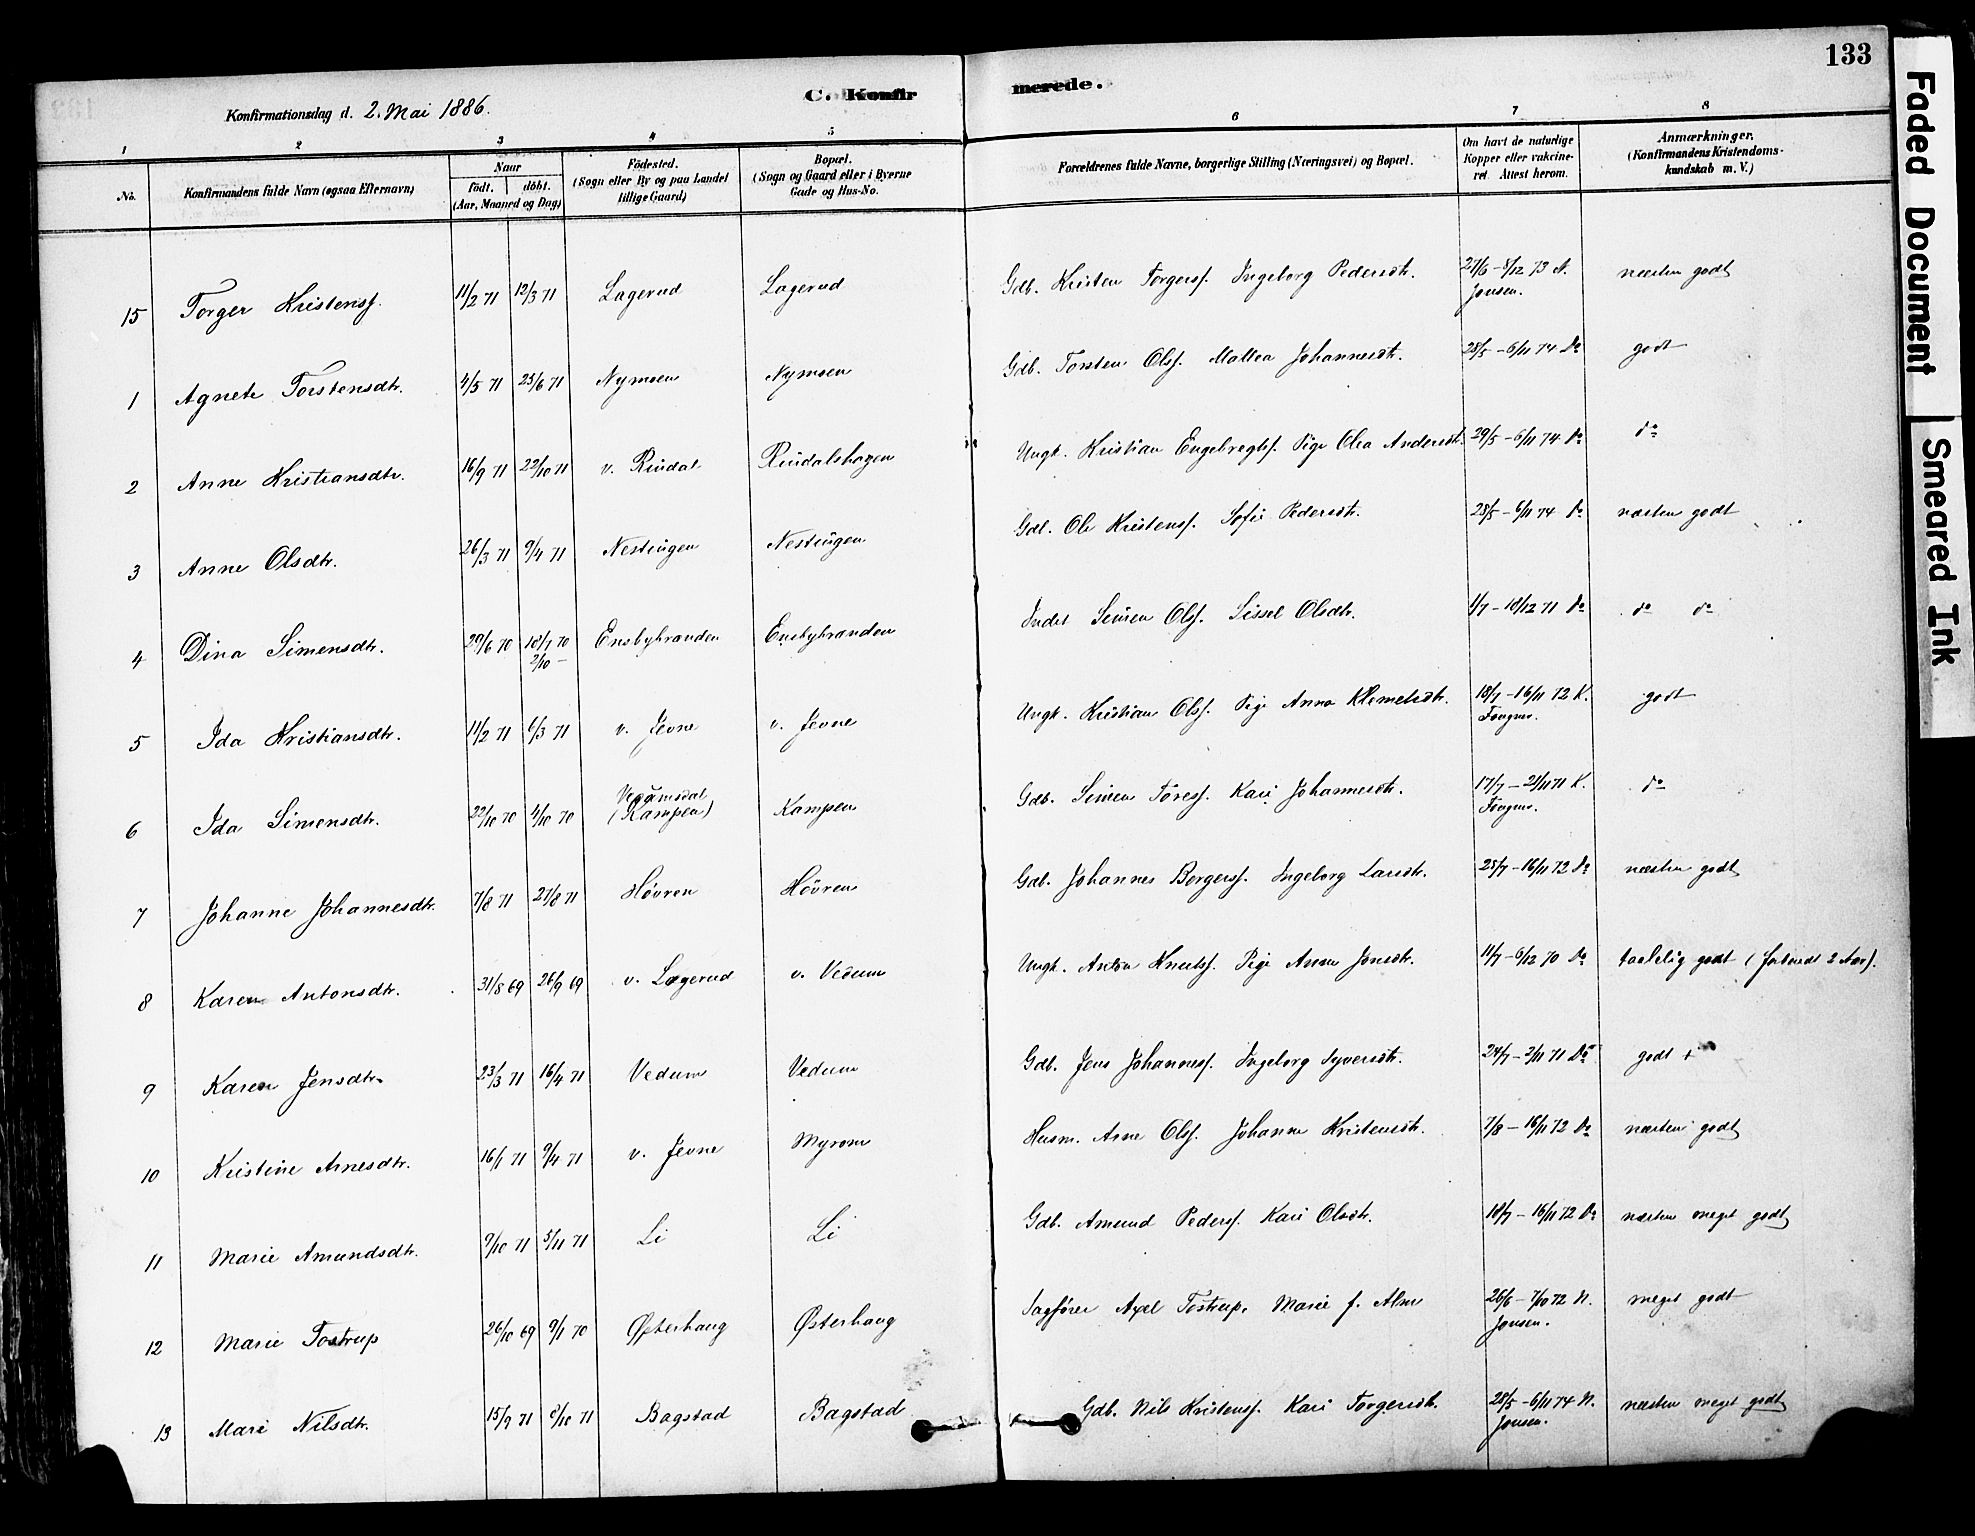 133
C. Konfir merede.
Konfirmationsdag d. 2. Mai 1886.
1 2 3 4 5 6 7 8
No. Konfirmandens fulde Navn (egsaa Efternavn) Naar født. døbt. (Aar, Maaned og Dag) Fødested. (Sogn eller By og paa Landet tillige Gaard) Bopæl. (Sogn og Gaard eller i Byerne Gade og Hus-No. Forældrenes fulde Navne, borgerlige Stilling (Næringsvei) og Bopæl. Om havt de naturlige Kopper eller vakcineret. Attest herom. Anmærkninger. (Konfirmandens Kristendomskundskab m. V.)
15 Torger Kristensf. 11/2 71 12/3 71 Lagerud Lagerud Gdb. Kristen Torgersf. Ingeborg Pedersdtr. 27/6 – 8/12 73 N. Jonsen. næsten godt
1 Agnete Torstensdtr. 4/5 71 25/6 71 Nymoen Nymoen Gdb. Torsten Olsf. Mathea Johannesdtr. 28/5 – 6/11 74 Do godt
2 Anne Kristiansdtr. 16/9 71 22/10 71 v. Rindal Rindalshagen Ungk. Kristian Engebregtsf. Pige Olea Andersdtr. 29/5 – 6/11 74 Do do
3 Anne Olsdtr. 26/3 71 9/4 71 Nestingen Nestingen Gdb. Ole Kristensf. Sofie Pedersdtr. 28/5 – 6/11 74 Do næsten godt
4 Dina Simensdtr. 29/6 70 10/7 70 2/10 – Ensbybraaden Ensbybraaden Inds. Simen Olsf. Sissel Olsdtr. 1/7 – 10/12 71 Do do do
5 Ida Kristiansdtr. 11/2 71 6/3 71 v. Jevne v. Jevne Ungk. Kristian Olsf. Pige Anna Klemetsdtr. 18/7 – 16/11 72 K. Fougner. godt
6 Ida Simensdtr. 22/10 70 4/10 70 Vegamsdal (Kampen) Kampen Gdb. Simen Toresf. Kari Johannesdtr. 17/7 – 21/11 71 K. Fougner. do
7 Johanne Johannesdtr. 7/8 71 27/8 71 Høvren Høvren Gdb. Johannes Borgersf. Ingeborg Larsdtr. 25/7 – 16/11 72 Do næsten godt
8 Karen Antonsdtr. 31/8 69 26/9 69 v. Lagerud v. Vedum Ungk. Anton Knutsf. Pige Anna Jonsdtr. 11/7 – 6/12 70 Do taalelig godt (forberedt 2 Aar).
9 Karen Jensdtr. 23/3 71 16/4 71 Vedum Vedum Gdb. Jens Johannesf. Ingeborg Syversdtr. 24/7 – 2/11 71 Do godt +
10 Kristine Arnesdtr. 16/1 71 9/4 71 v. Jevne Myrom Husm. Arne Olsf. Johanne Kristensdtr. 7/8 – 16/11 72 Do næsten godt
11 Marie Amundsdtr. 9/10 71 5/11 71 Li Li Gdb. Amund Pedersf. Kari Olsdtr. 18/7 – 16/11 72 Do næsten meget godt
12 Marie Tostrup 26/10 69 9/1 70 Østerhaug Østerhaug Sagfører Axel Tostrup. Marie f. Alm 26/6 – 7/10 72 N. Jonsen. meget godt
13 Mari Nilsdtr. 15/9 71 8/10 71 Bagstad Bagstad Gdb. Nils Kristensf. Kari Torgersdtr. 28/5 – 6/11 74 N. Jonsen. næsten meget godt
Faded Document
Smeared Ink